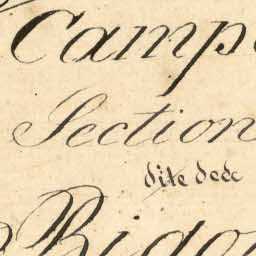 Camp
Section
dite dede
Rigo